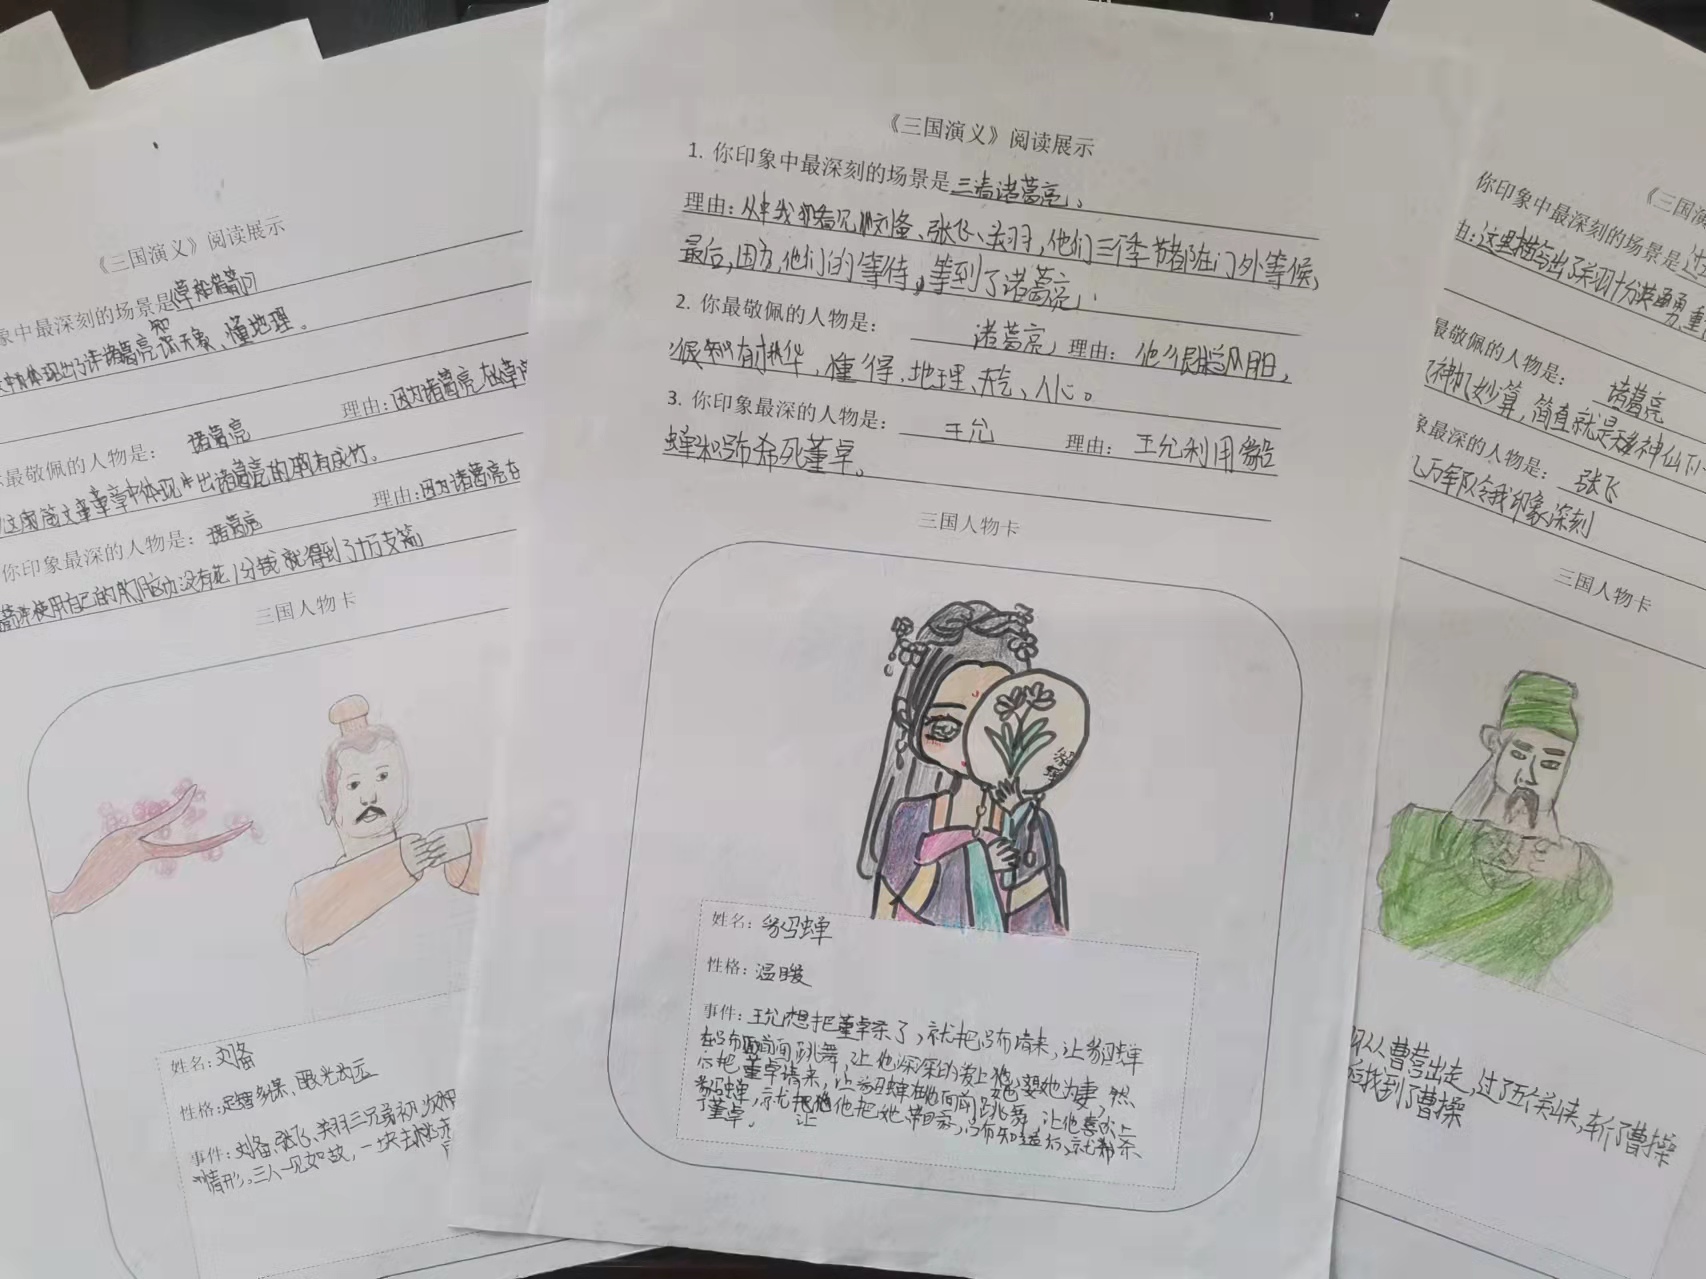 《三国演义》阅读展示
象中最深刻的场景是草船借箭
诸葛亮知天象、懂地理。
最敬佩的人物是: 诸葛亮 理由:因为诸葛亮在
文章中体现出诸葛亮的胸有成竹。
你印象最深的人物是: 诸葛亮 理由:因为诸葛亮在
使用自己的 没有花1分钱就得到了十万支箭
三国人物卡
姓名:刘备
性格:足智多谋、眼光
事件:刘备、张飞、关羽三兄弟初次
情形。三人一见如故,一块去桃
《三国演义》阅读展示
1. 你印象中最深刻的场景是三请诸葛亮。
理由:从中我看见刘备、张飞、关羽,他们三个季节都在门外等候,
最后,因为他们的等待,等到了诸葛亮
2. 你最敬佩的人物是: 诸葛亮 理由:他很聪明,
很有才华,懂得,地理、天气、人心。
3. 你印象最深的人物是: 王允 理由:王允利用貂
蝉和吕布杀死董卓。
三国人物卡
貂蝉
姓名:貂蝉
性格:温暖
事件:王允想把董卓杀了,就把吕布请来,让貂蝉
在吕布面前跳舞,让他深深的爱上她,娶她为妻,然
后把董卓请来,让貂蝉在他面前跳舞,让他喜欢上
貂蝉,就让他把她带回家,吕布知道后,就杀
了董卓。
《三国演
你印象中最深刻的场景是过
由:这里描写出了关羽十分英勇、重
最敬佩的人物是: 诸葛亮
神机妙算,简直就是神仙下
象最深的人物是: 张飞
几万军队令我印象深刻
三国人物卡
从曹营出走,过了五个关峡,斩了曹操
后找到了曹操